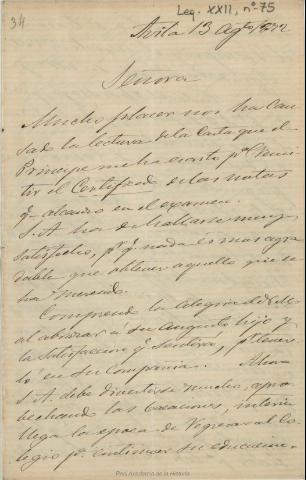 34
Leg. XXII, nº 75
Avila 13 Agto 1872
Señora
Mucho placer nos ha cau
sado la lectura de la carta que el
Principe me ha escrito pª remi
tir el Certificado de las notas
q. alcanzo en el examen.
S. A. ha de hallarse muy
satisfecho, pr q. nada és mas agra
dable que obtener aquello que se
ha merecido.
Comprendo la alegria de V. M.
al abrazar á su augusto hijo y
la satisfaccion q. sentirá, pr tener
lo en su compañia. Ahora
S. A. debe divertirse mucho, apro
bechando las vacaciones, interin
llega la epoca de regresar al Co
legio pª continuar su educacion.
Real Academia de la Historia